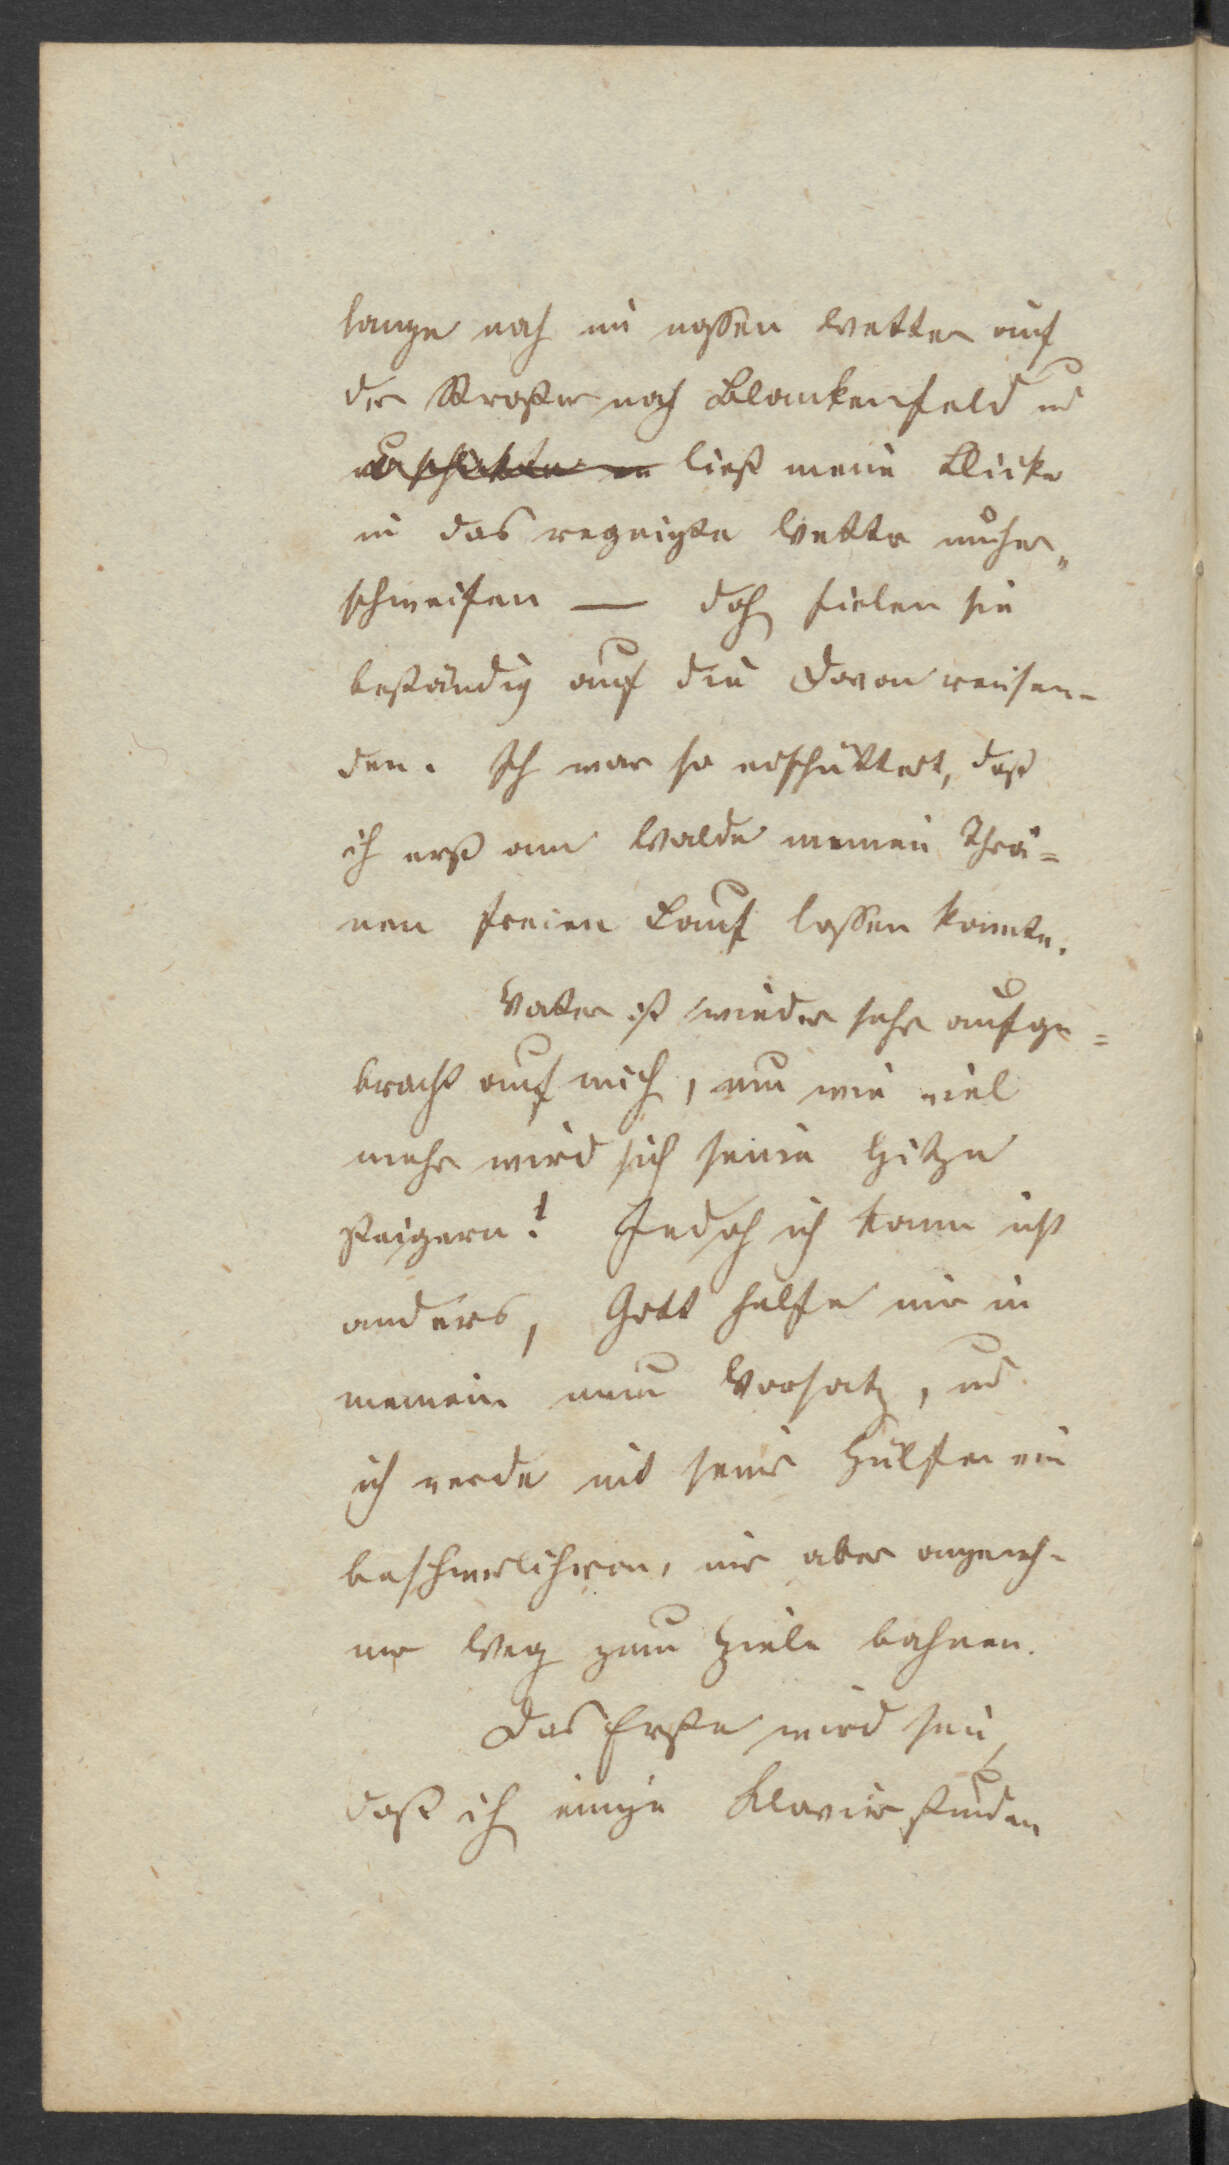 lange noch im nassen Wetter auf
der Straße nach Blankenfeld und
ließ meine Blicke
in das regnigte Wetter umher„
schweifen — doch fielen sie
beständig auf die Davonreisen-
den. Ich war so erschüttert, daß
ich erst am Walde meinen Thrä=
nen freien Lauf lassen konnte.
Vater ist wieder sehr aufge=
bracht auf mich, nun wie viel
mehr wird sich seine Hitze
steigern! Jedoch ich kann nicht
anders, Gott helfe mir in
meinem neuen Vorsatz, und
ich werde mit seiner Hülfe ein
beschwerlichern, mir aber angeneh-
mer Weg zum Ziele bahnen.
Das Erste wird sein,
daß ich einige Klavierstunden